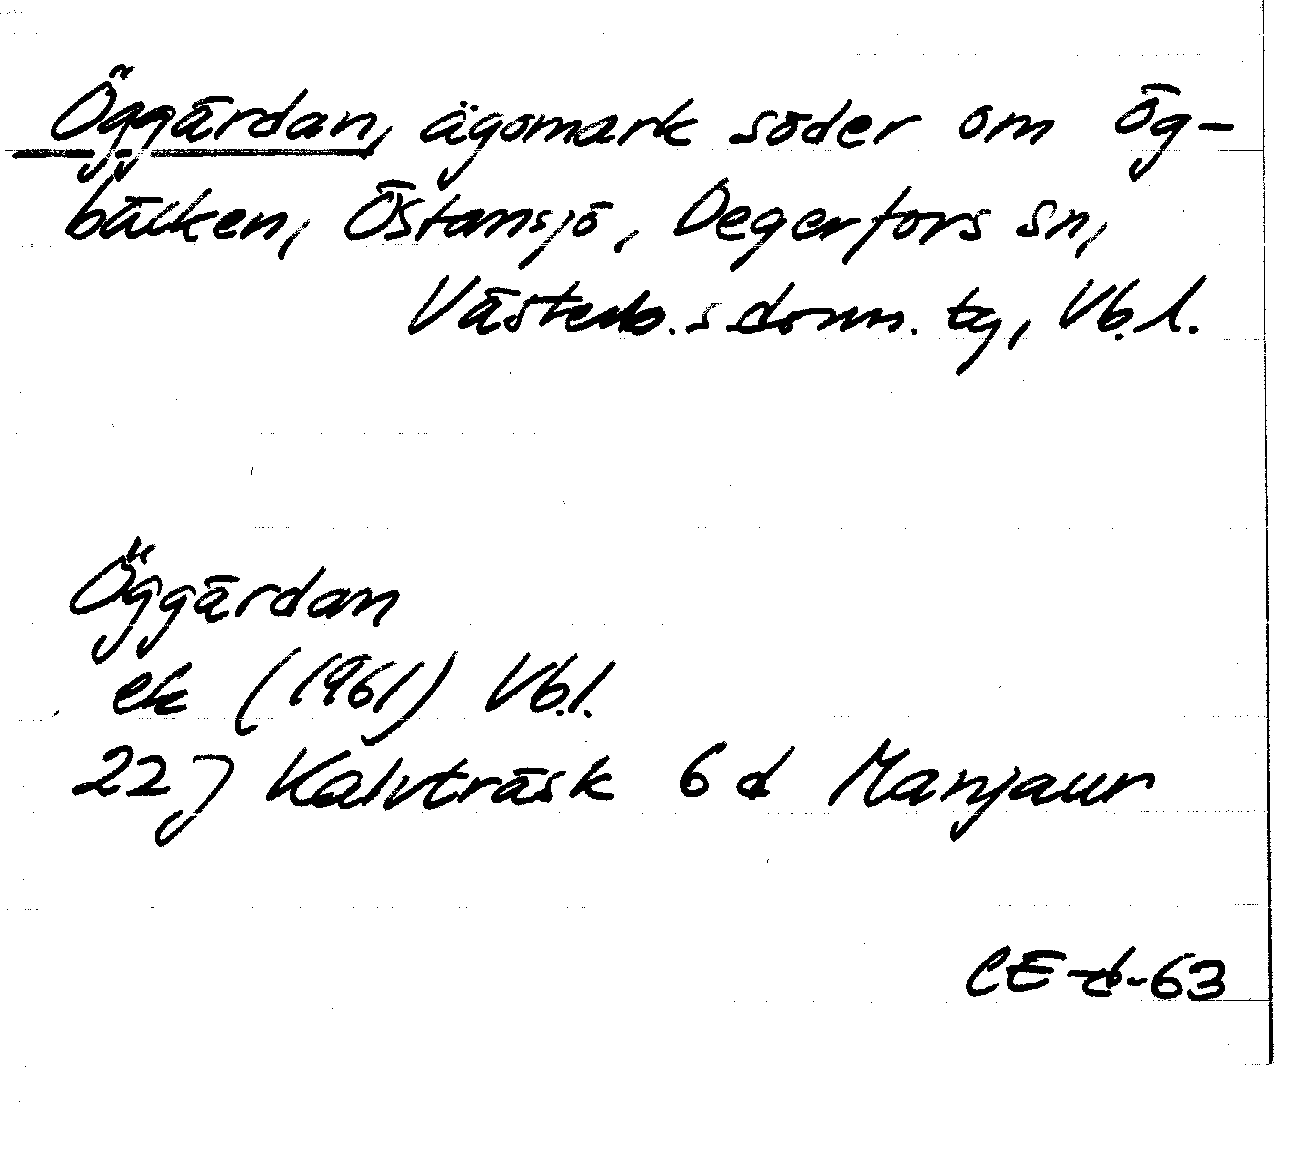 Öggärdan, ägomark söder om Ög-
bäcken, Östansjö, Degerfors sn,
Västerb. s domn. tg, Vb.l.
Öggärdan
ek (1961) Vb.l.
22J Kalvträsk 6d Manjaur
CE-d-63